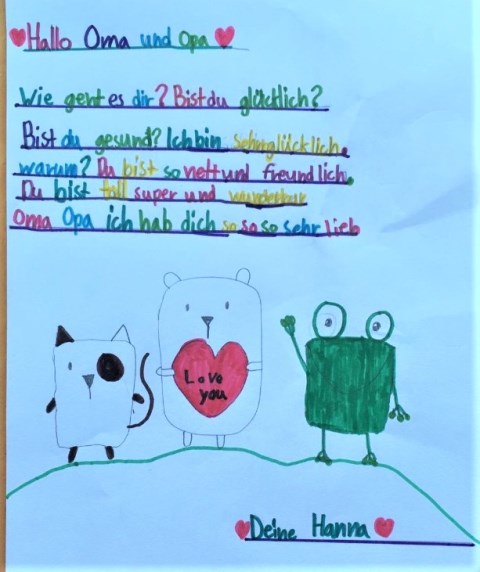 Hallo Oma und Opa
Wie geht es dir? Bist du glücklich?
Bist du gesund? Ich bin sehr glücklich.
warum? Du bist so nett und freundlich.
Du bist toll super und wunderbar
Oma Opa ich hab dich so so so sehr lieb
Love
you
Deine Hanna